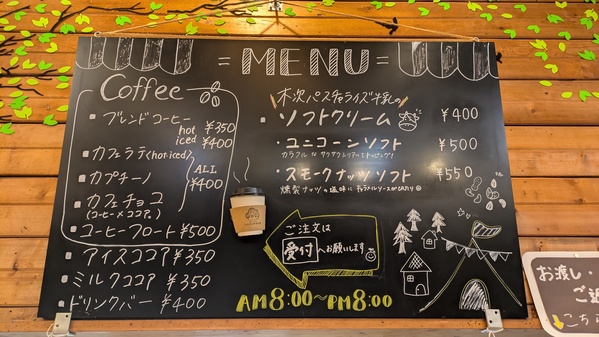 = MENU =
Coffee
ブレンドコーヒー
hot ¥350
iced ¥400
カフェラテ(hot・iced)
カプチーノ
カフェチョコ
(コーヒー×ココア)
ALL
¥400
コーヒーフロート ¥500
アイスココア ¥350
ミルクココア ¥350
ドリンクバー ¥400
木次パスチャライズ牛乳の
ソフトクリーム ¥400
ユニコーンソフト ¥500
スモークナッツソフト ¥550
ご注文は
受付へお願いします
AM8:00~PM8:00
お渡し・
ご返
こちら